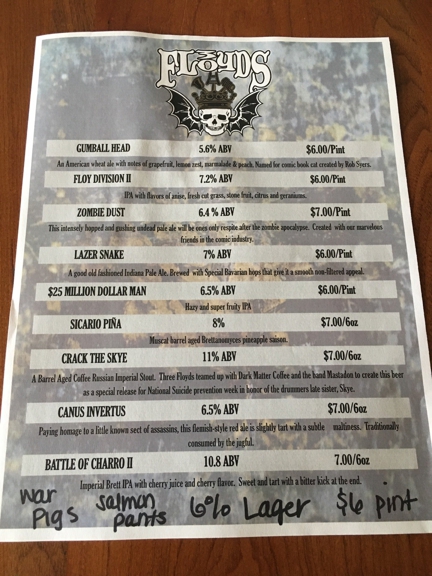 FLOYDS
GUMBALL HEAD 5.6% ABV $6.00/Pint
An American wheat ale with notes of grapefruit, lemon zest, marmalade & peach. Named for comic book cat created by Rob Syers.
FLOY DIVISION II 7.2% ABV $6.00/Pint
IPA with flavors of anise, fresh cut grass, stone fruit, citrus and geraniums.
ZOMBIE DUST 6.4 % ABV $7.00/Pint
This intensely hopped and gushing undead pale ale will be ones only respite after the zombie apocalypse. Created with our marvelous
friends in the comic industry.
LAZER SNAKE 7% ABV $6.00/Pint
A good old fashioned Indiana Pale Ale. Brewed with Special Bavarian hops that give it a smooth non-filtered appeal.
$25 MILLION DOLLAR MAN 6.5% ABV $6.00/Pint
Hazy and super fruity IPA
SICARIO PIÑA 8% $7.00/6oz
Muscat barrel aged Brettanomyces pineapple saison.
CRACK THE SKYE 11% ABV $7.00/6oz
A Barrel Aged Coffee Russian Imperial Stout. Three Floyds teamed up with Dark Matter Coffee and the band Mastadon to create this beer
as a special release for National Suicide prevention week in honor of the drummers late sister, Skye.
CANUS INVERTUS 6.5% ABV $7.00/6oz
Paying homage to a little known sect of assassins, this flemish-style red ale is slightly tart with a subtle maltiness. Traditionally
consumed by the jugful.
BATTLE OF CHARRO II 10.8 ABV 7.00/6oz
Imperial Brett IPA with cherry juice and cherry flavor. Sweet and tart with a bitter kick at the end.
War Salmon 6% Lager $6 pint
Pigs pants